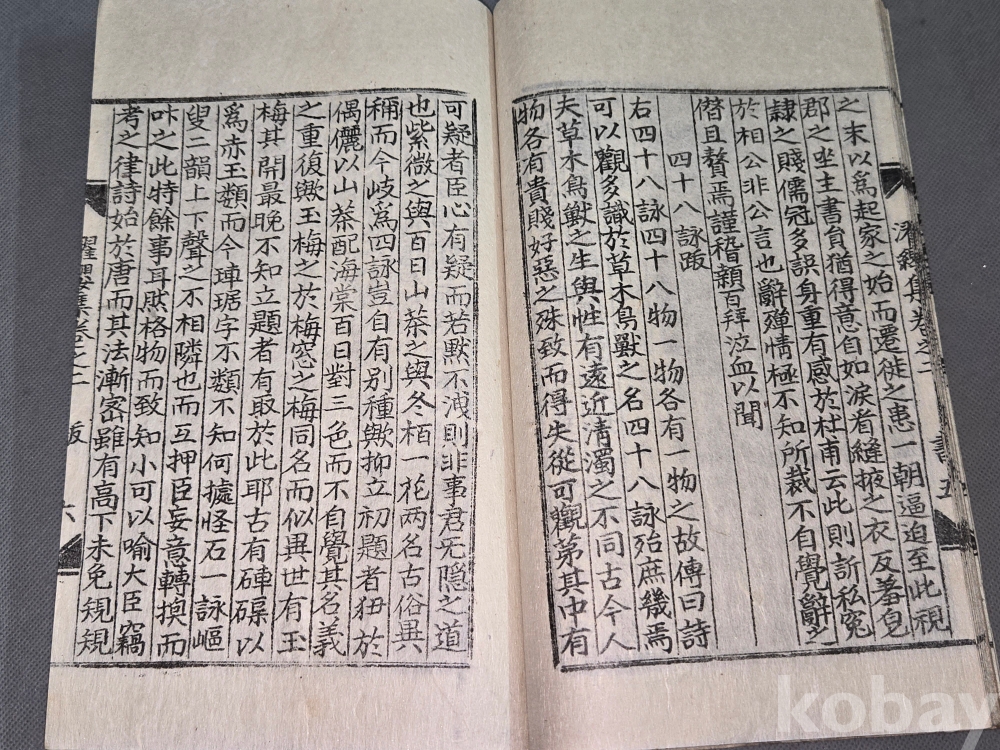 之末以爲起家之始而遷徙之患一朝逼迫至此視
郡之坐主書肻猶得意自如淚看縫掖之衣反蓄皂
隸之賤儒冠多誤身重有感於杜甫云此則訴私寃
於相公非公言也辭殫情極不知所裁不自覺辭之
僭且贅焉謹稽顙百拜泣血以聞
四十八詠跋
右四十八詠四十八物一物各有一物之故傳曰詩
可以觀多識於草木鳥獸之名四十八詠殆庶幾焉
夫草木鳥獸之生與性有遠近淸濁之不同古今人
物各有貴賤好惡之殊致而得失從可觀第其中有
可疑者臣心有疑而若默不洩則非事君无隱之道
也紫微之與百日山茶之與冬栢一花两名古俗異
稱而今岐爲四詠豈自有別種歟抑立初題者狃於
偶儷以山茶配海棠百日對三色而不自覺其名義
之重復歟玉梅之於梅窓之梅同名而似異世有玉
梅其開最晚不知立題者有取於此耶古有硨磲以
爲赤玉類而今琲琚字不類不知何據怪石一詠嶇
叟二韻上下聲之不相隣也而互押臣妄意轉換而
叶之此特餘事耳然格物而致知小可以喻大臣竊
考之律詩始於唐而其法漸密雖有高下未免䂓䂓
濯纓集卷之二
跋
六
濯纓集卷之二
書
五
kobay